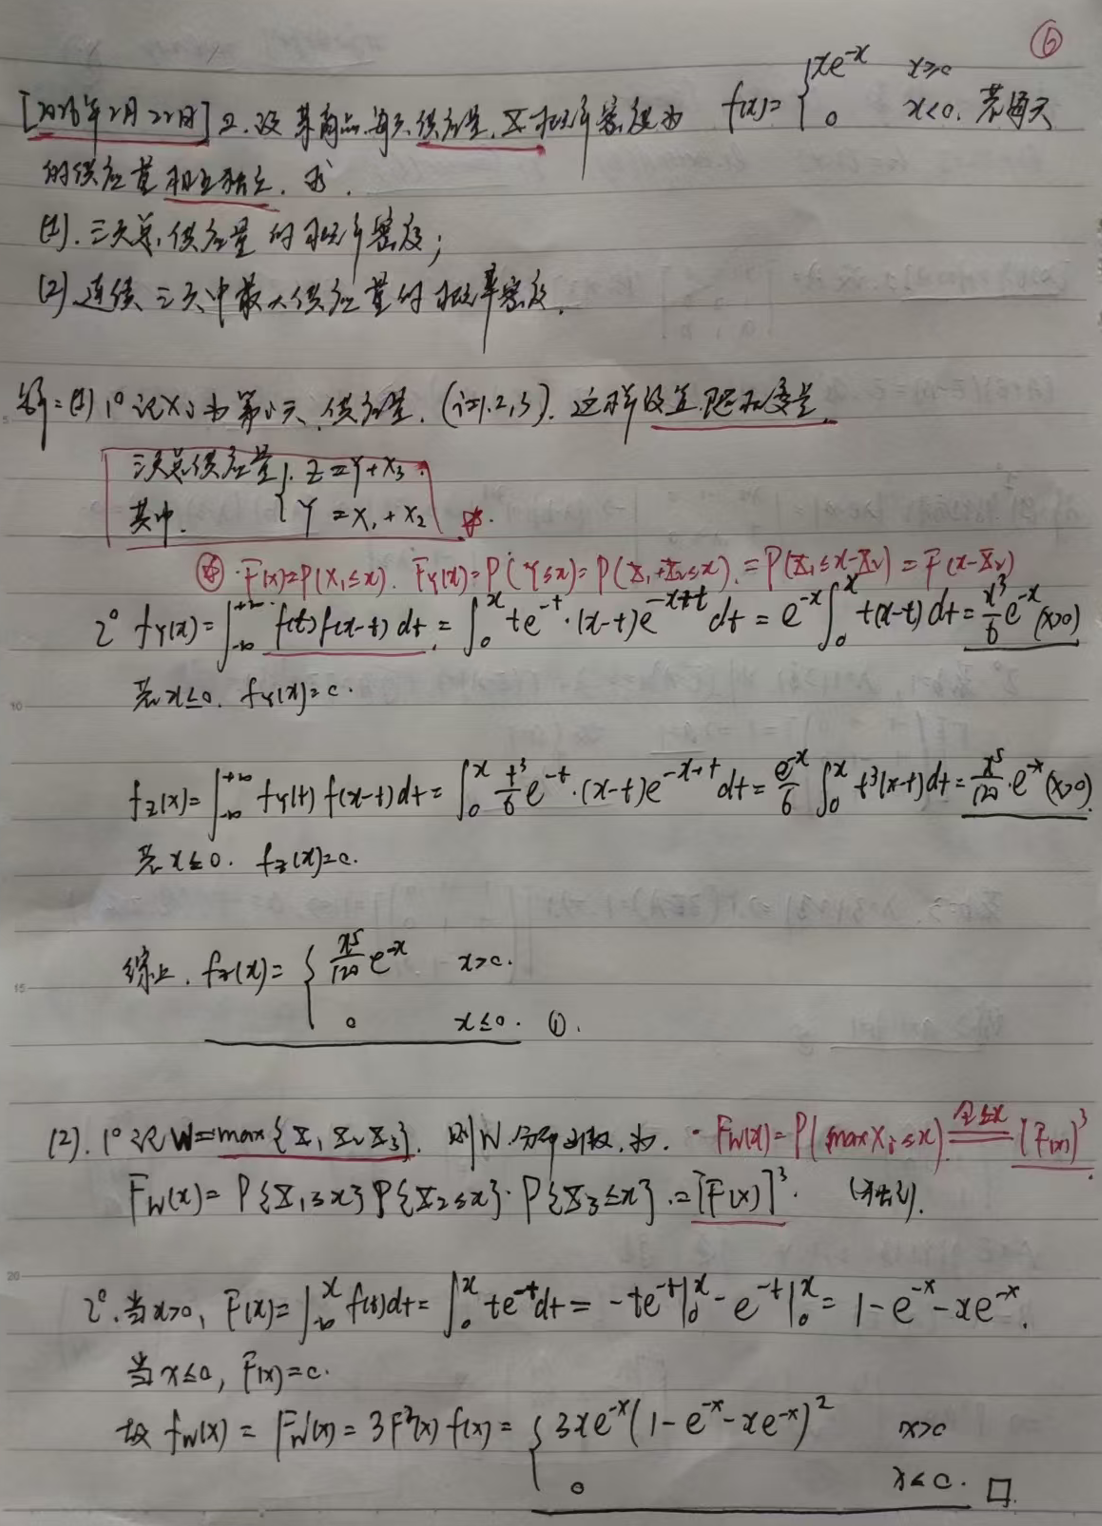 ⑥
[2026年2月22日] 2. 设某商品每天供应量 X 概率密度为 f(x)= { xe^{-x} x≥0
0 x<0. 若每天
的供应量相互独立. 求.
(1). 三天总供应量的概率密度;
(2) 连续三天中最大供应量的概率密度.
解: (1) 1° 记 Xi 为第i天供应量. (i=1,2,3). 这样设立随机变量
三天总供应量 { Z=Y+X₃.
其中. Y=X₁+X₂ ※.
※ F(x)=P(X₁≤x). F_Y(x)=P(Y≤x)=P(X₁+X₂≤x).=P(X₁≤x-X₂)=F(x-X₂)
2° f_Y(x)=∫_{-∞}^{+∞} f(t)f(x-t)dt.=∫_0^x te^{-t}·(x-t)e^{-x+t}dt=e^{-x}∫_0^x t(x-t)dt=x³/6 e^{-x} (x>0)
若x≤0. f_Y(x)=0.
f_Z(x)=∫_{-∞}^{+∞} f_Y(t) f(x-t)dt=∫_0^x t³/6 e^{-t}·(x-t)e^{-x+t}dt=e^{-x}/6 ∫_0^x t³(x-t)dt=x⁵/120·e^{-x} (x>0).
若x≤0. f_Z(x)=0.
综上. f_Z(x)= { x⁵/120 e^{-x} x>0.
0 x≤0. ①.
(2). 1° 记W=max{X₁ X₂ X₃}. 则W分布函数为. · F_W(x)=P(maxXi≤x) 全≤x = [F(x)]³.
F_W(x)=P{X₁≤x}P{X₂≤x}·P{X₃≤x}.=[F(x)]³. (独立).
2°. 当x>0, F(x)=∫_{-∞}^x f(t)dt=∫_0^x te^{-t}dt=-te^{-t}|_0^x-e^{-t}|_0^x=1-e^{-x}-xe^{-x}.
当x≤0, F(x)=0.
故 f_W(x)=F'_W(x)=3F²(x)f(x)= { 3xe^{-x}(1-e^{-x}-xe^{-x})² x>0
0 x≤0. □